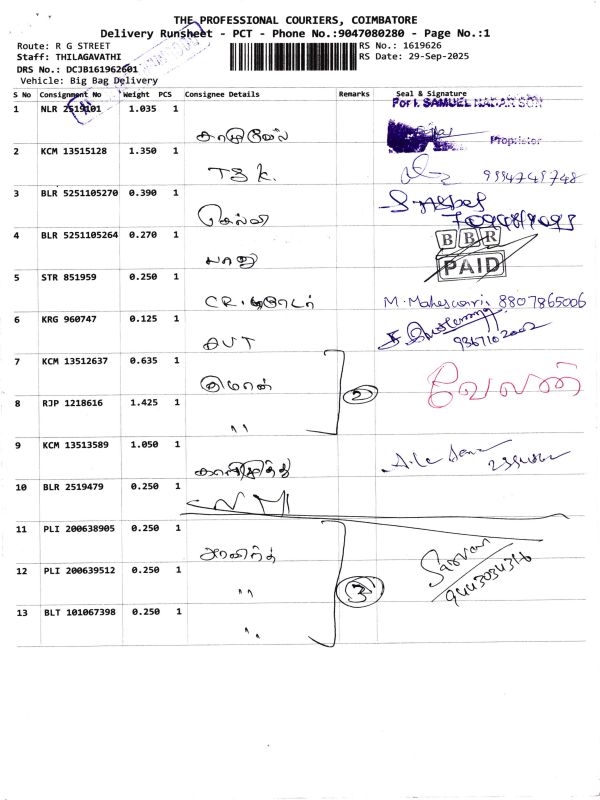 THE PROFESSIONAL COURIERS, COIMBATORE
Delivery Runsheet - PCT - Phone No.:9047080280 - Page No.:1
Route: R G STREET
RS No.: 1619626
Staff: THILAGAVATHI
RS Date: 29-Sep-2025
DRS No.: DCJB161962601
Vehicle: Big Bag Delivery
S No Consignment No Weight PCS Consignee Details Remarks Seal & Signature
1 NLR 2519101 1.035 1
For I. SAMUEL NADAR SON
Proprietor
2 KCM 13515128 1.350 1
9994749748
3 BLR 5251105270 0.390 1
செல்வி
4 BLR 5251105264 0.270 1
BBR
PAID
5 STR 851959 0.250 1
M. Maheswari 8807865006
6 KRG 960747 0.125 1
AVT
7 KCM 13512637 0.635 1
2
வேலன்
8 RJP 1218616 1.425 1
"
9 KCM 13513589 1.050 1
10 BLR 2519479 0.250 1
11 PLI 200638905 0.250 1
12 PLI 200639512 0.250 1
"
3
Sarvan
9443034316
13 BLT 101067398 0.250 1
"